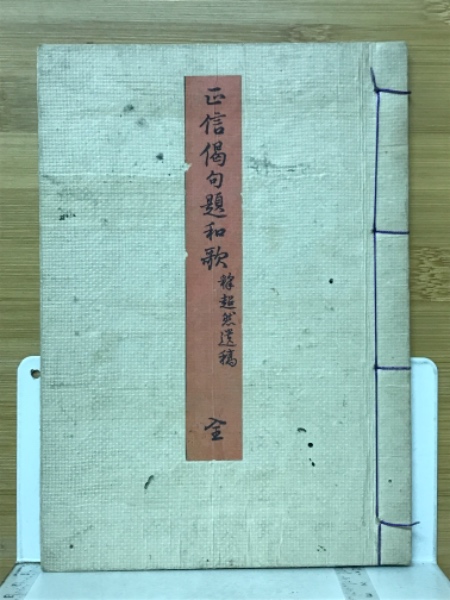 正信偈句題和歌
釋超然遺稿
全